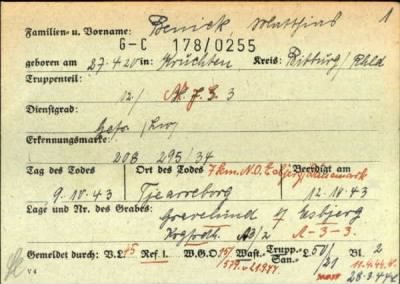 Familien- u. Vorname: Benick, Matthias 1
G-C 178/0255
geboren am 27.4.20 in: Krüchten Kreis: Bitburg/Rhld
Truppenteil:
12./ N.J.G. 3
Dienstgrad:
Gefr.
Erkennungsmarke:
208 295/34
Tag des Todes Ort des Todes 7km.N.O.Esbjerg/Dänemark Beerdigt am
9.10.43 Tjearreborg 12.10.43
Lage und Nr. des Grabes: Gravelund Esbjerg
A3/2 A-3-3.
Gemeldet durch: V.L. 45 Ref.1. W.G.O. Wast.- Trupp.- San.- L.50/ 21 Bl. 2
28.3.44